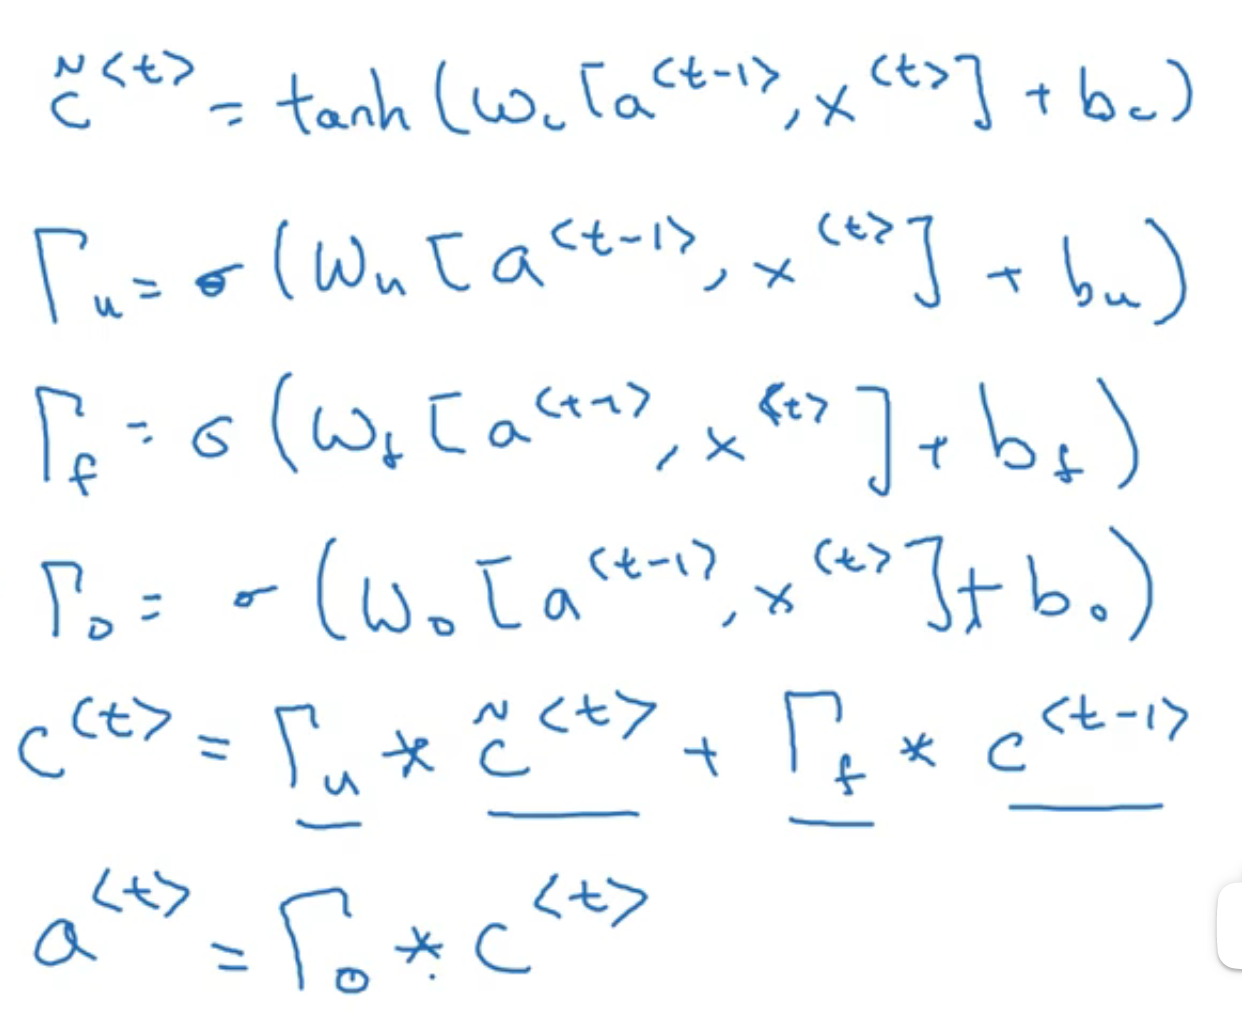 c̃^<t> = tanh(W_c[a^<t-1>, x^<t>] + b_c)
Γ_u = σ(W_u[a^<t-1>, x^<t>] + b_u)
Γ_f = σ(W_f[a^<t-1>, x^<t>] + b_f)
Γ_o = σ(W_o[a^<t-1>, x^<t>] + b_o)
c^<t> = Γ_u * c̃^<t> + Γ_f * c^<t-1>
a^<t> = Γ_o * c^<t>